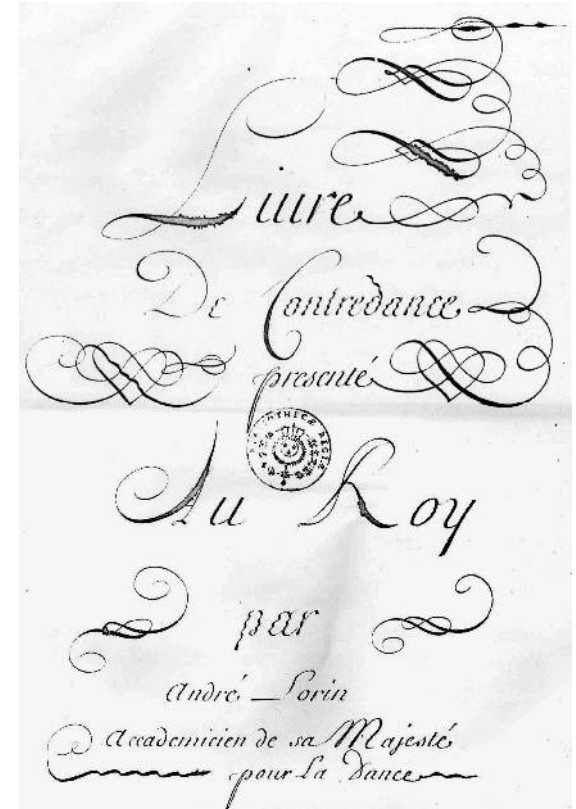 Livre
De Contredance
presenté
Au Roy
par
André Lorin
Accademicien de sa Majesté
pour La Dance